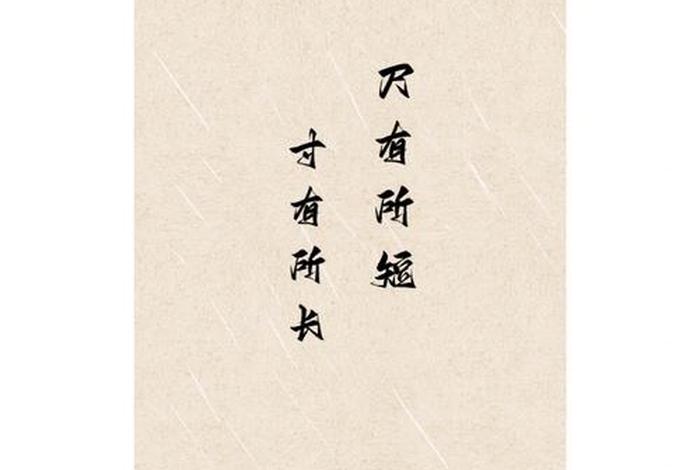 尺有所短
寸有所长